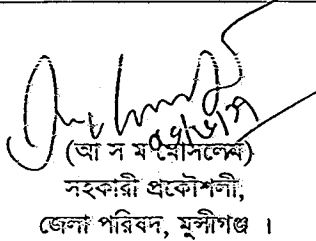 (আ স ম মোসলেম)
সহকারী প্রকৌশলী,
জেলা পরিষদ, মুন্সীগঞ্জ ।